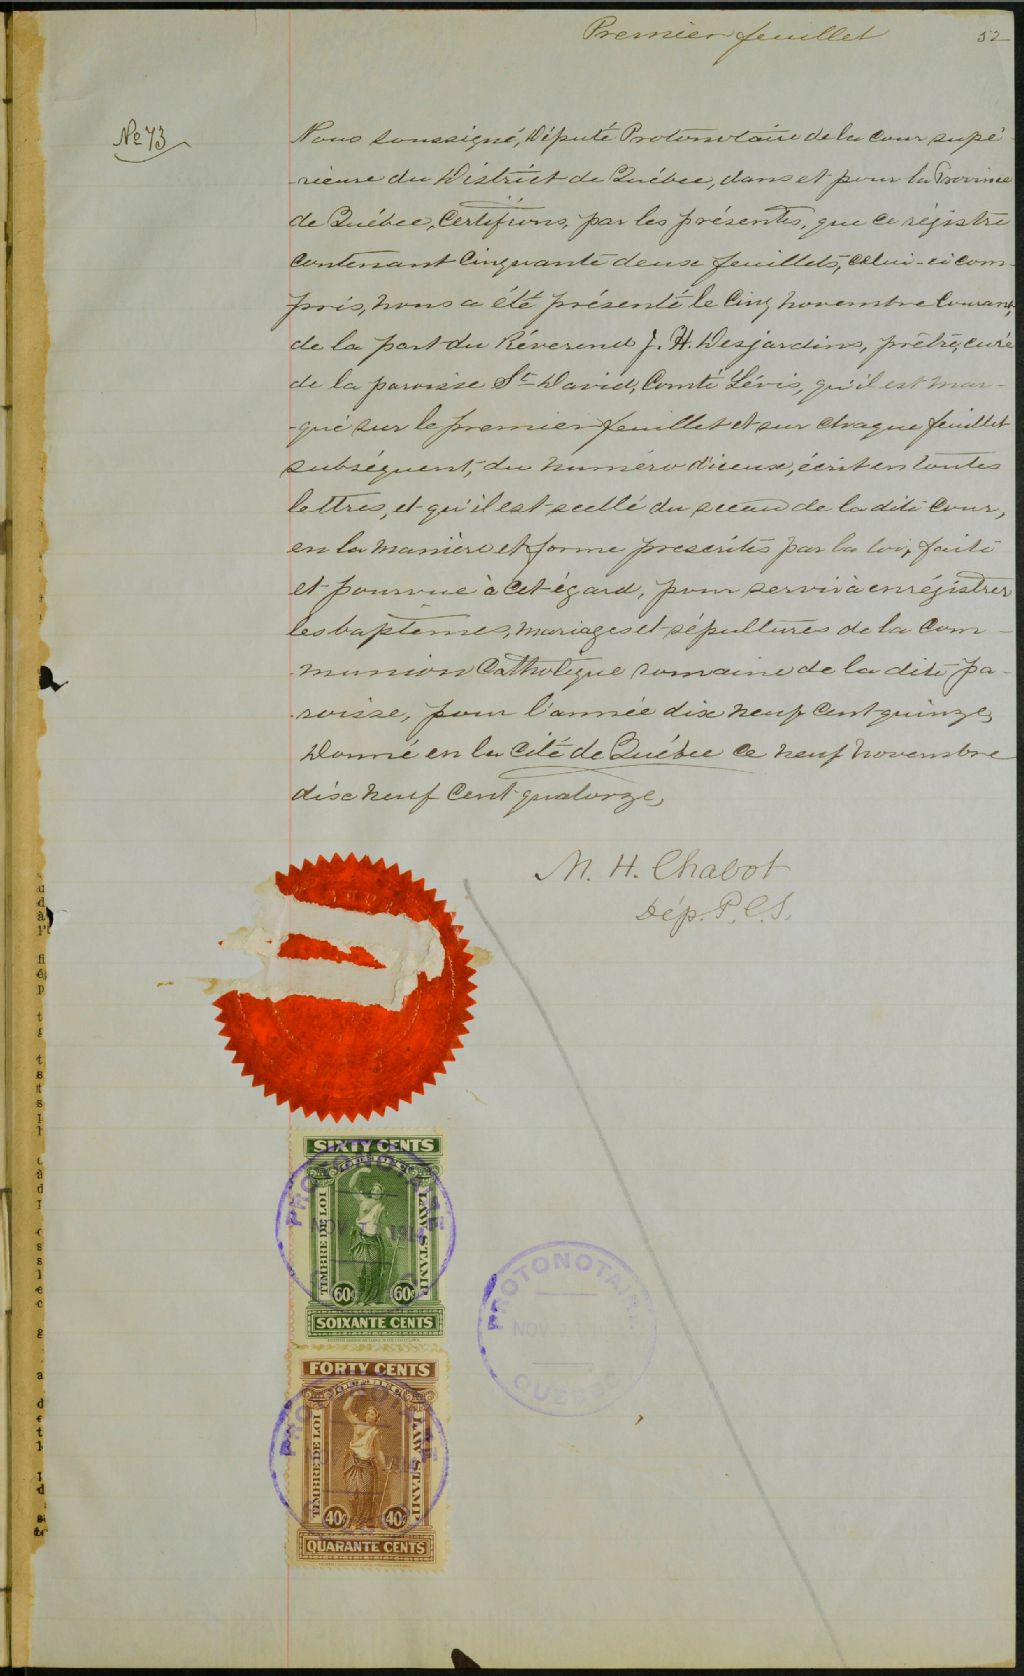 Premier feuillet
52
No 73
Nous soussigné, Député Protonotaire de la cour supé-
-rieure du District de Québec, dans et pour la Province
de Québec, Certifions, par les présentes, que ce régistre
contenant Cinquante deux feuillets, celui-ci com-
pris, nous a été présenté le Cinq novembre Courant,
de la part du Révérend J. H. Desjardins, prêtre, curé
de la paroisse St David, Comté Lévis, qu'il est mar-
-qué sur le premier feuillet et sur chaque feuillet
subséquent, du numéro d'iceux, écrit en toutes
lettres, et qu'il est scellé du sceau de la dite Cour,
en la manière et forme prescrites par la loi, faite
et pourvue à cet égard, pour servir à enrégistrer
les baptêmes, mariages et sépultures de la Com-
-munion Catholique romaine de la dite pa-
-roisse, pour l'année dix neuf Cent quinze,
Donné en la Cité de Québec ce neuf Novembre
dix neuf Cent quatorze,
M. H. Chabot
Dép. P. C. S.
SIXTY CENTS
TIMBRE DE LOI
LAW STAMP
60c 60c
SOIXANTE CENTS
PROTONOTAIRE
NOV 1914
PROTONOTAIRE
NOV
QUEBEC
FORTY CENTS
TIMBRE DE LOI
LAW STAMP
40c 40c
QUARANTE CENTS
PROTONOTAIRE